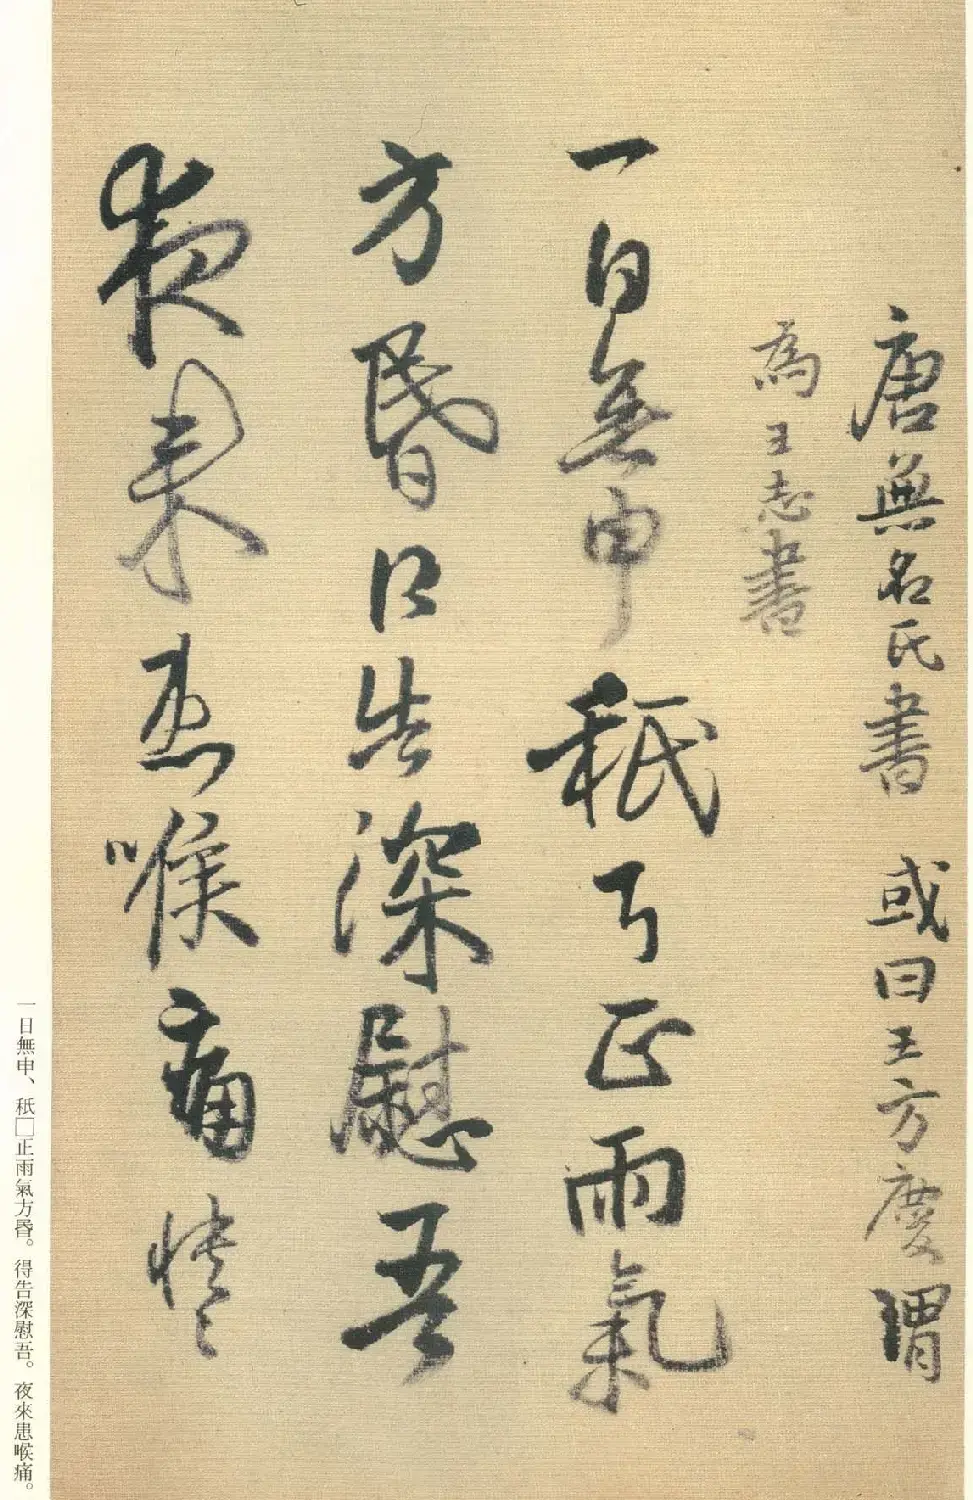 唐無名氏書 或曰王方慶謂
為王志書
一日無申秖 正雨氣
方昏 告深慰吾
夜来患喉痛
一日無申、秖□正雨氣方昏。得告深慰吾。夜來患喉痛。